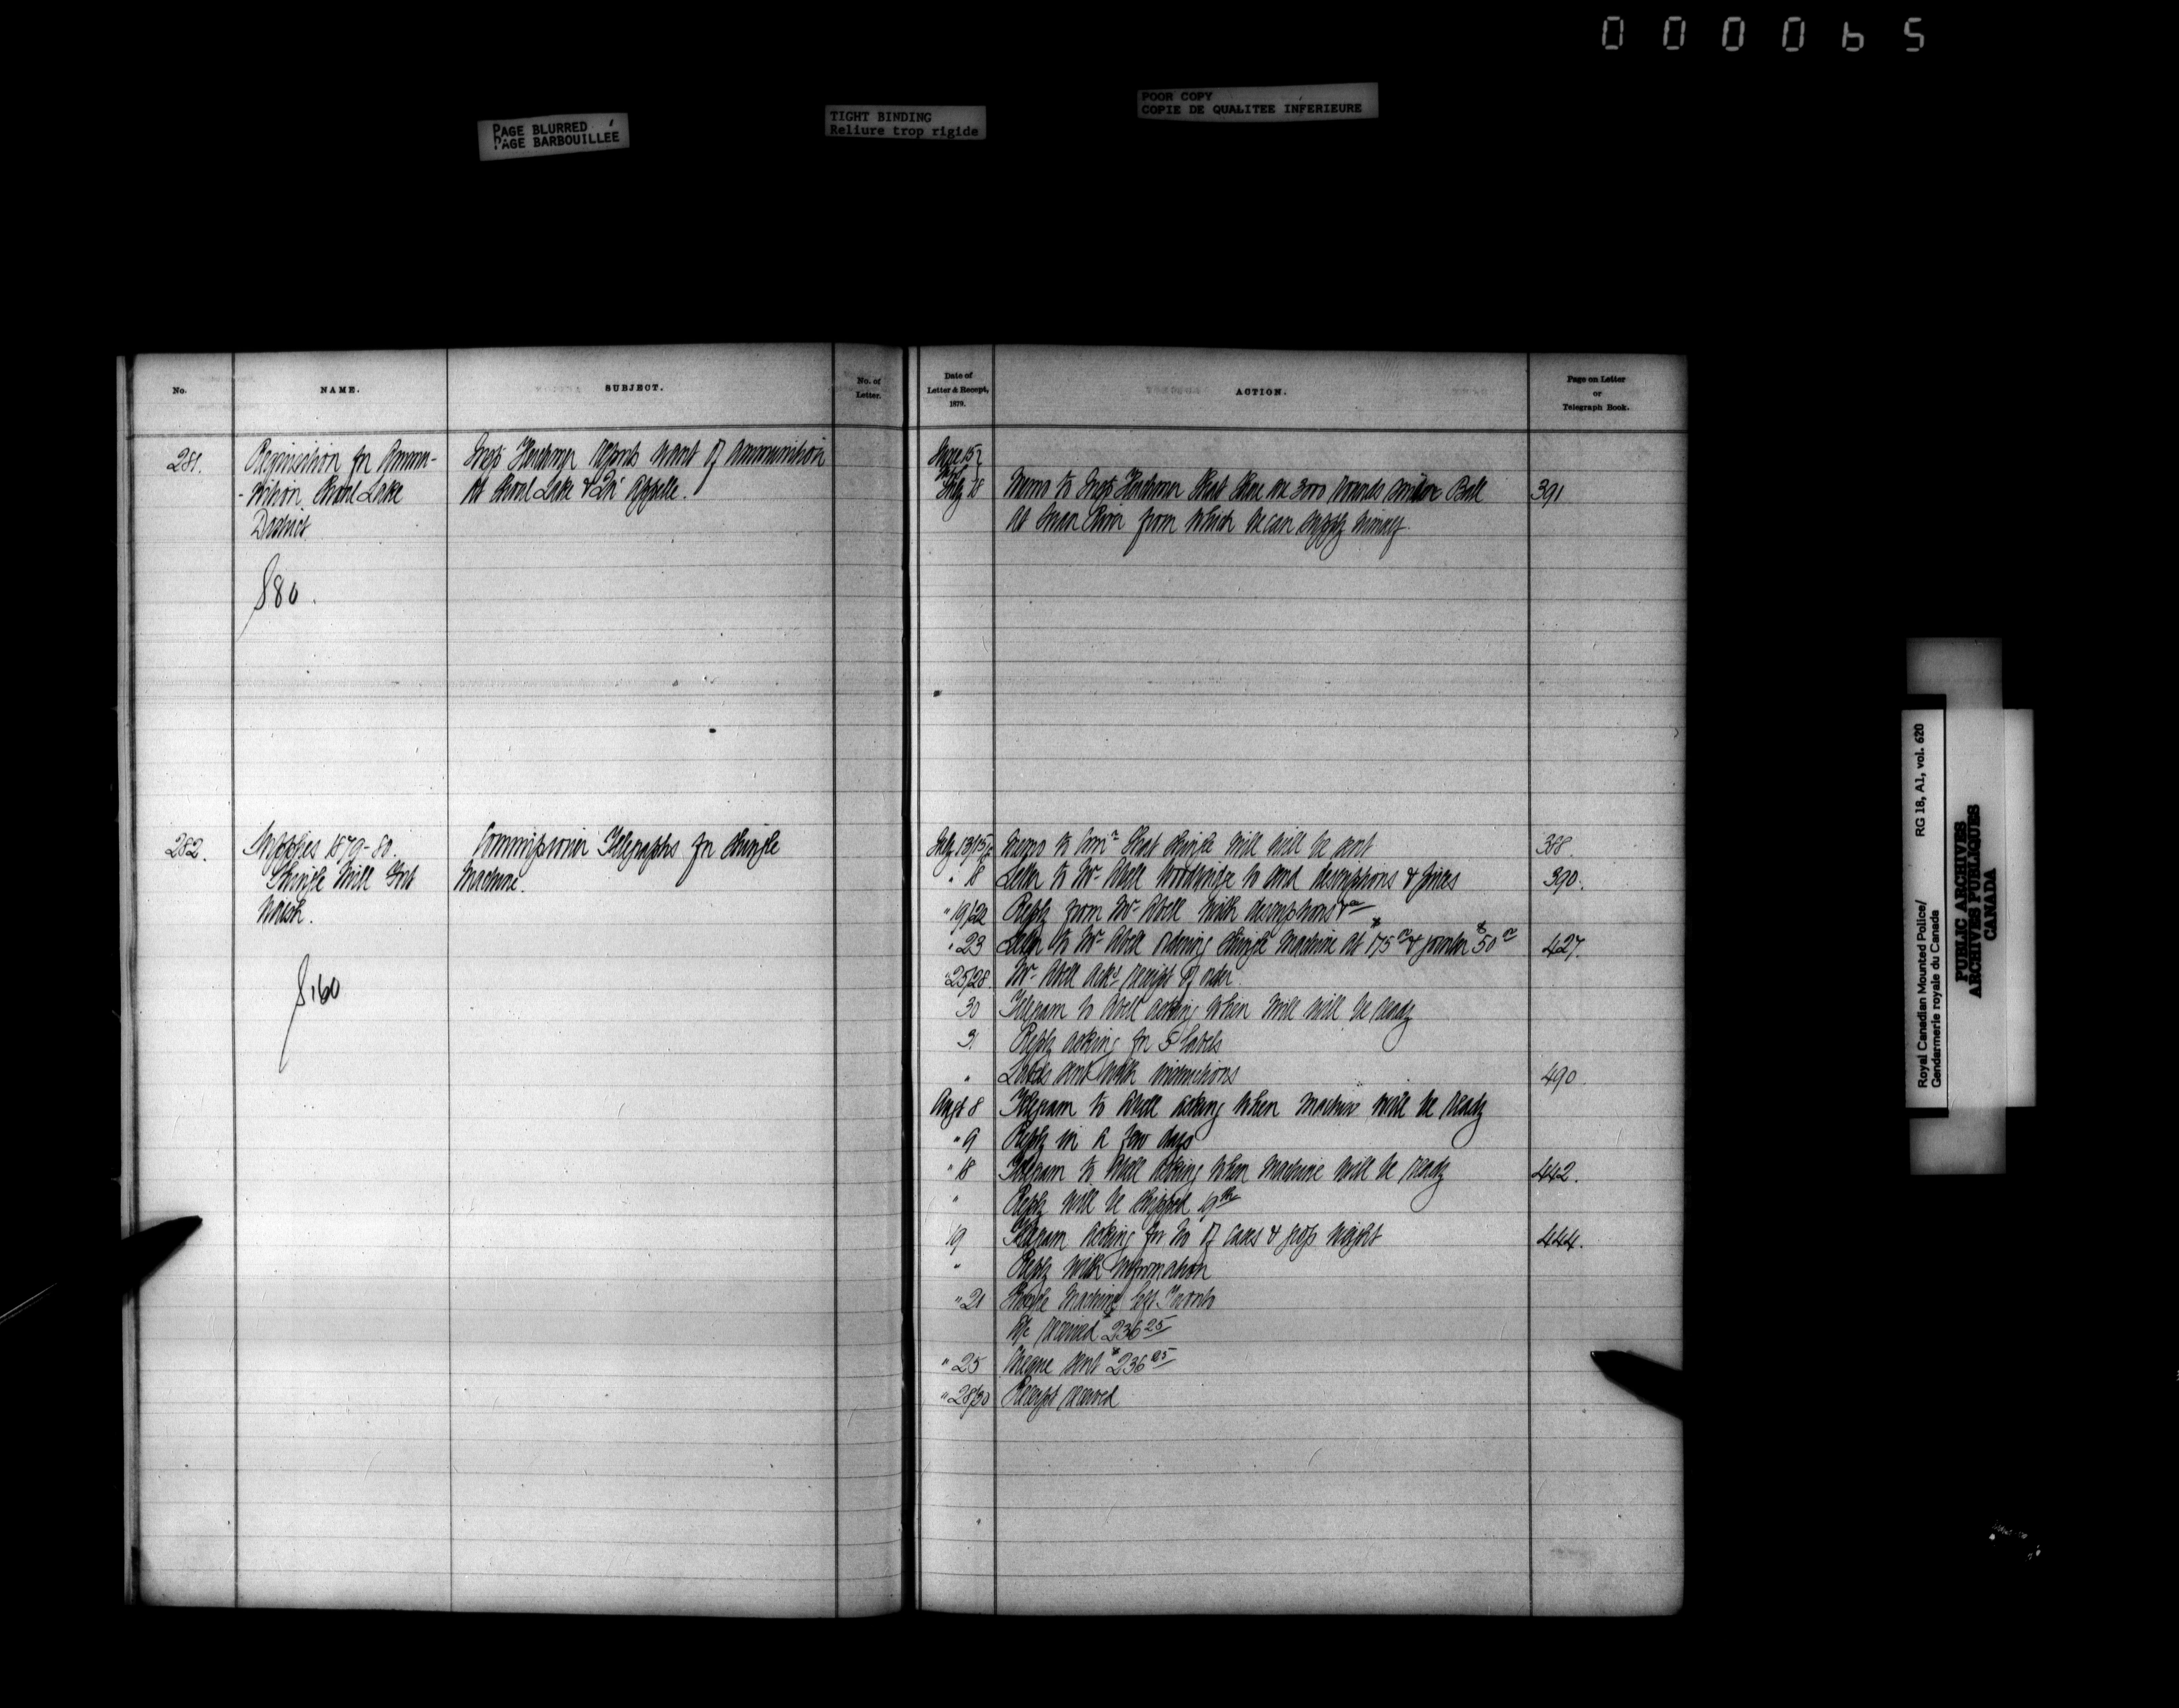 000065
PAGE BLURRED
PAGE BARBOUILLÉE
TIGHT BINDING
Reliure trop rigide
POOR COPY
COPIE DE QUALITEE INFERIEURE
No.
NAME.
SUBJECT.
No. of
Letter.
Date of
Letter & Receipt,
1879.
ACTION.
Page on Letter
or
Telegraph Book.
281. Requisition for Ammu-
-nition Shoal Lake
District
S 80.
Insp Herchmer reports want of ammunition
at Shoal Lake & Qu' Appelle.
June 15
July 18 Memo to Insp Herchmer that there are 3000 rounds Snider Ball 391
at Swan River from which he can supply himself
282. Supplies 1879-80.
Shingle Mill Fort
Walsh.
S 160
Commissioner Telegraphs for Shingle
Machine.
July 13/15 Memo to Comr that shingle mill will be sent 388.
" 18 Letter to Mr Abell Woodbridge to send descriptions & prices 390.
" 19/22 Reply from Mr Abell with descriptions &c
" 23 Letter to Mr Abell ordering shingle machine at $175 & jointer $50 427.
" 25/28 Mr Abell acks receipt of order
30 Telegram to Abell asking when mill will be ready
31 Reply asking for 5 labels
" Labels sent with instructions 490.
Augt 8 Telegram to Abell asking when machine will be ready
" 9 Reply in a few days
" 18 Telegram to Abell asking when machine will be ready 442.
" Reply will be shipped 19th
19 Telegram asking for No of cases & gross weight 444.
" Reply with information
" 21 Shingle Machine left Toronto
A/c received $236 25
" 25 Cheque sent $236 25
" 28/30 Receipt received
Royal Canadian Mounted Police/
Gendarmerie royale du Canada
RG 18, A1, vol. 620
PUBLIC ARCHIVES
ARCHIVES PUBLIQUES
CANADA